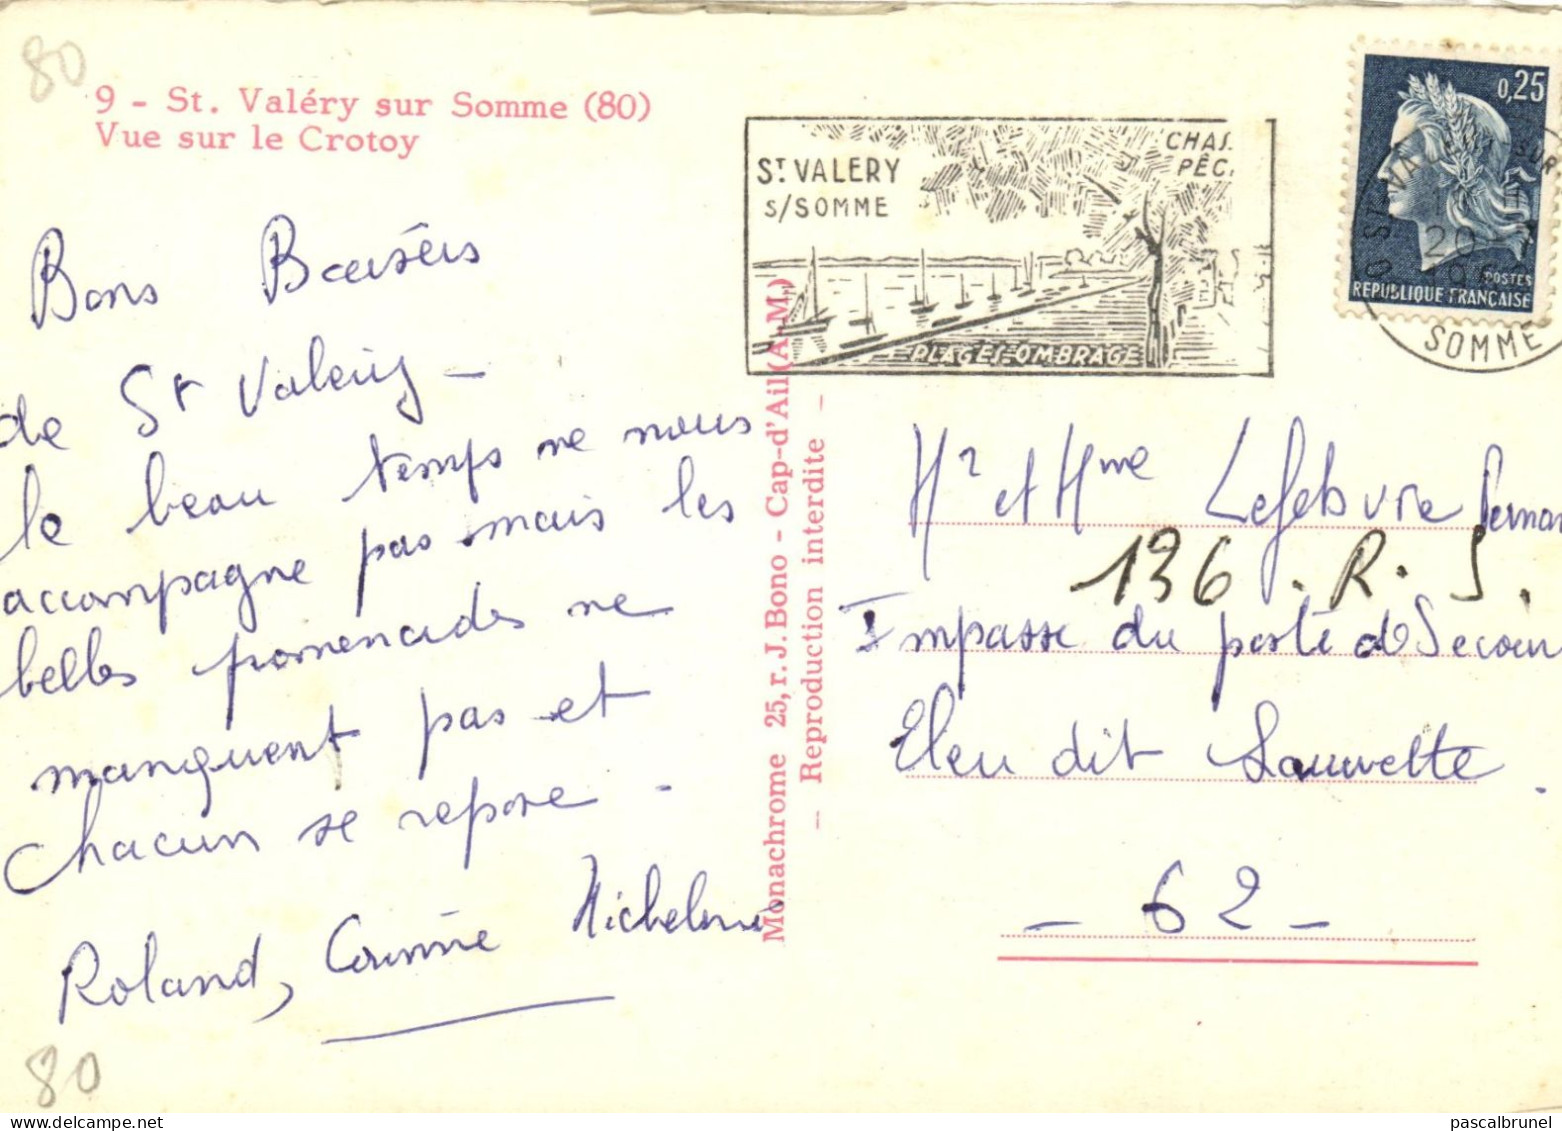 80
9 - St. Valéry sur Somme (80)
Vue sur le Crotoy
Bons Baisers
de St Valery -
le beau temps ne nous
accompagne pas mais les
belles promenades ne
manquent pas et
chacun se repose -
Roland, Corinne Micheline
80
Monachrome 25, r. J. Bono - Cap-d'Ail (A.-M.)
- Reproduction interdite -
ST VALERY
S/SOMME
CHAS.
PÊC.
PLAGES-OMBRAGE
0,25
POSTES
REPUBLIQUE FRANÇAISE
80 ST VALERY SUR
20
SOMME
Mr et Mme Lefebvre Fernan
136 . R . S .
Impasse du poste de Secour
Eleu dit Sauwette .
- 62 -
pascalbrunel